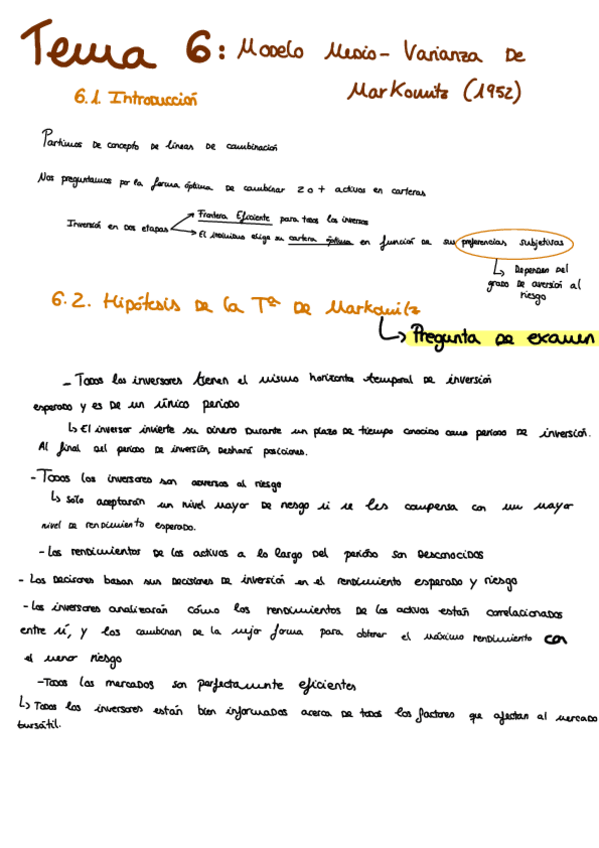 Tema 6: Modelo Medio-Varianza de
Markowitz (1952)
6.1. Introducción
Partimos de concepto de líneas de combinación
Nos preguntamos por la forma óptima de combinar 2 o + activos en carteras
Inversión en dos etapas
Frontera Eficiente para todos los inversos
El individuo elige su cartera óptima en función de sus preferencias subjetivas
↳ Dependen del
grado de aversión al
riesgo
6.2. Hipótesis de la Tª de Markowitz
↳ Pregunta de examen
- Todos los inversores tienen el mismo horizonte temporal de inversión
esperado y es de un único periodo
↳ El inversor invierte su dinero durante un plazo de tiempo conocido como periodo de inversión.
Al final del periodo de inversión, deshará posiciones.
- Todos los inversores son adversos al riesgo
↳ solo aceptarán un nivel mayor de riesgo si se les compensa con un mayor
nivel de rendimiento esperado.
- Los rendimientos de los activos a lo largo del periodo son desconocidos
- Los decisores basan sus decisiones de inversión en el rendimiento esperado y riesgo
- Los inversores analizarán cómo los rendimientos de los activos están correlacionados
entre sí, y los combinan de la mejor forma para obtener el máximo rendimiento con
el menor riesgo
- Todos los mercados son perfectamente eficientes
↳ Todos los inversores están bien informados acerca de todos los factores que afectan al mercado
bursátil.